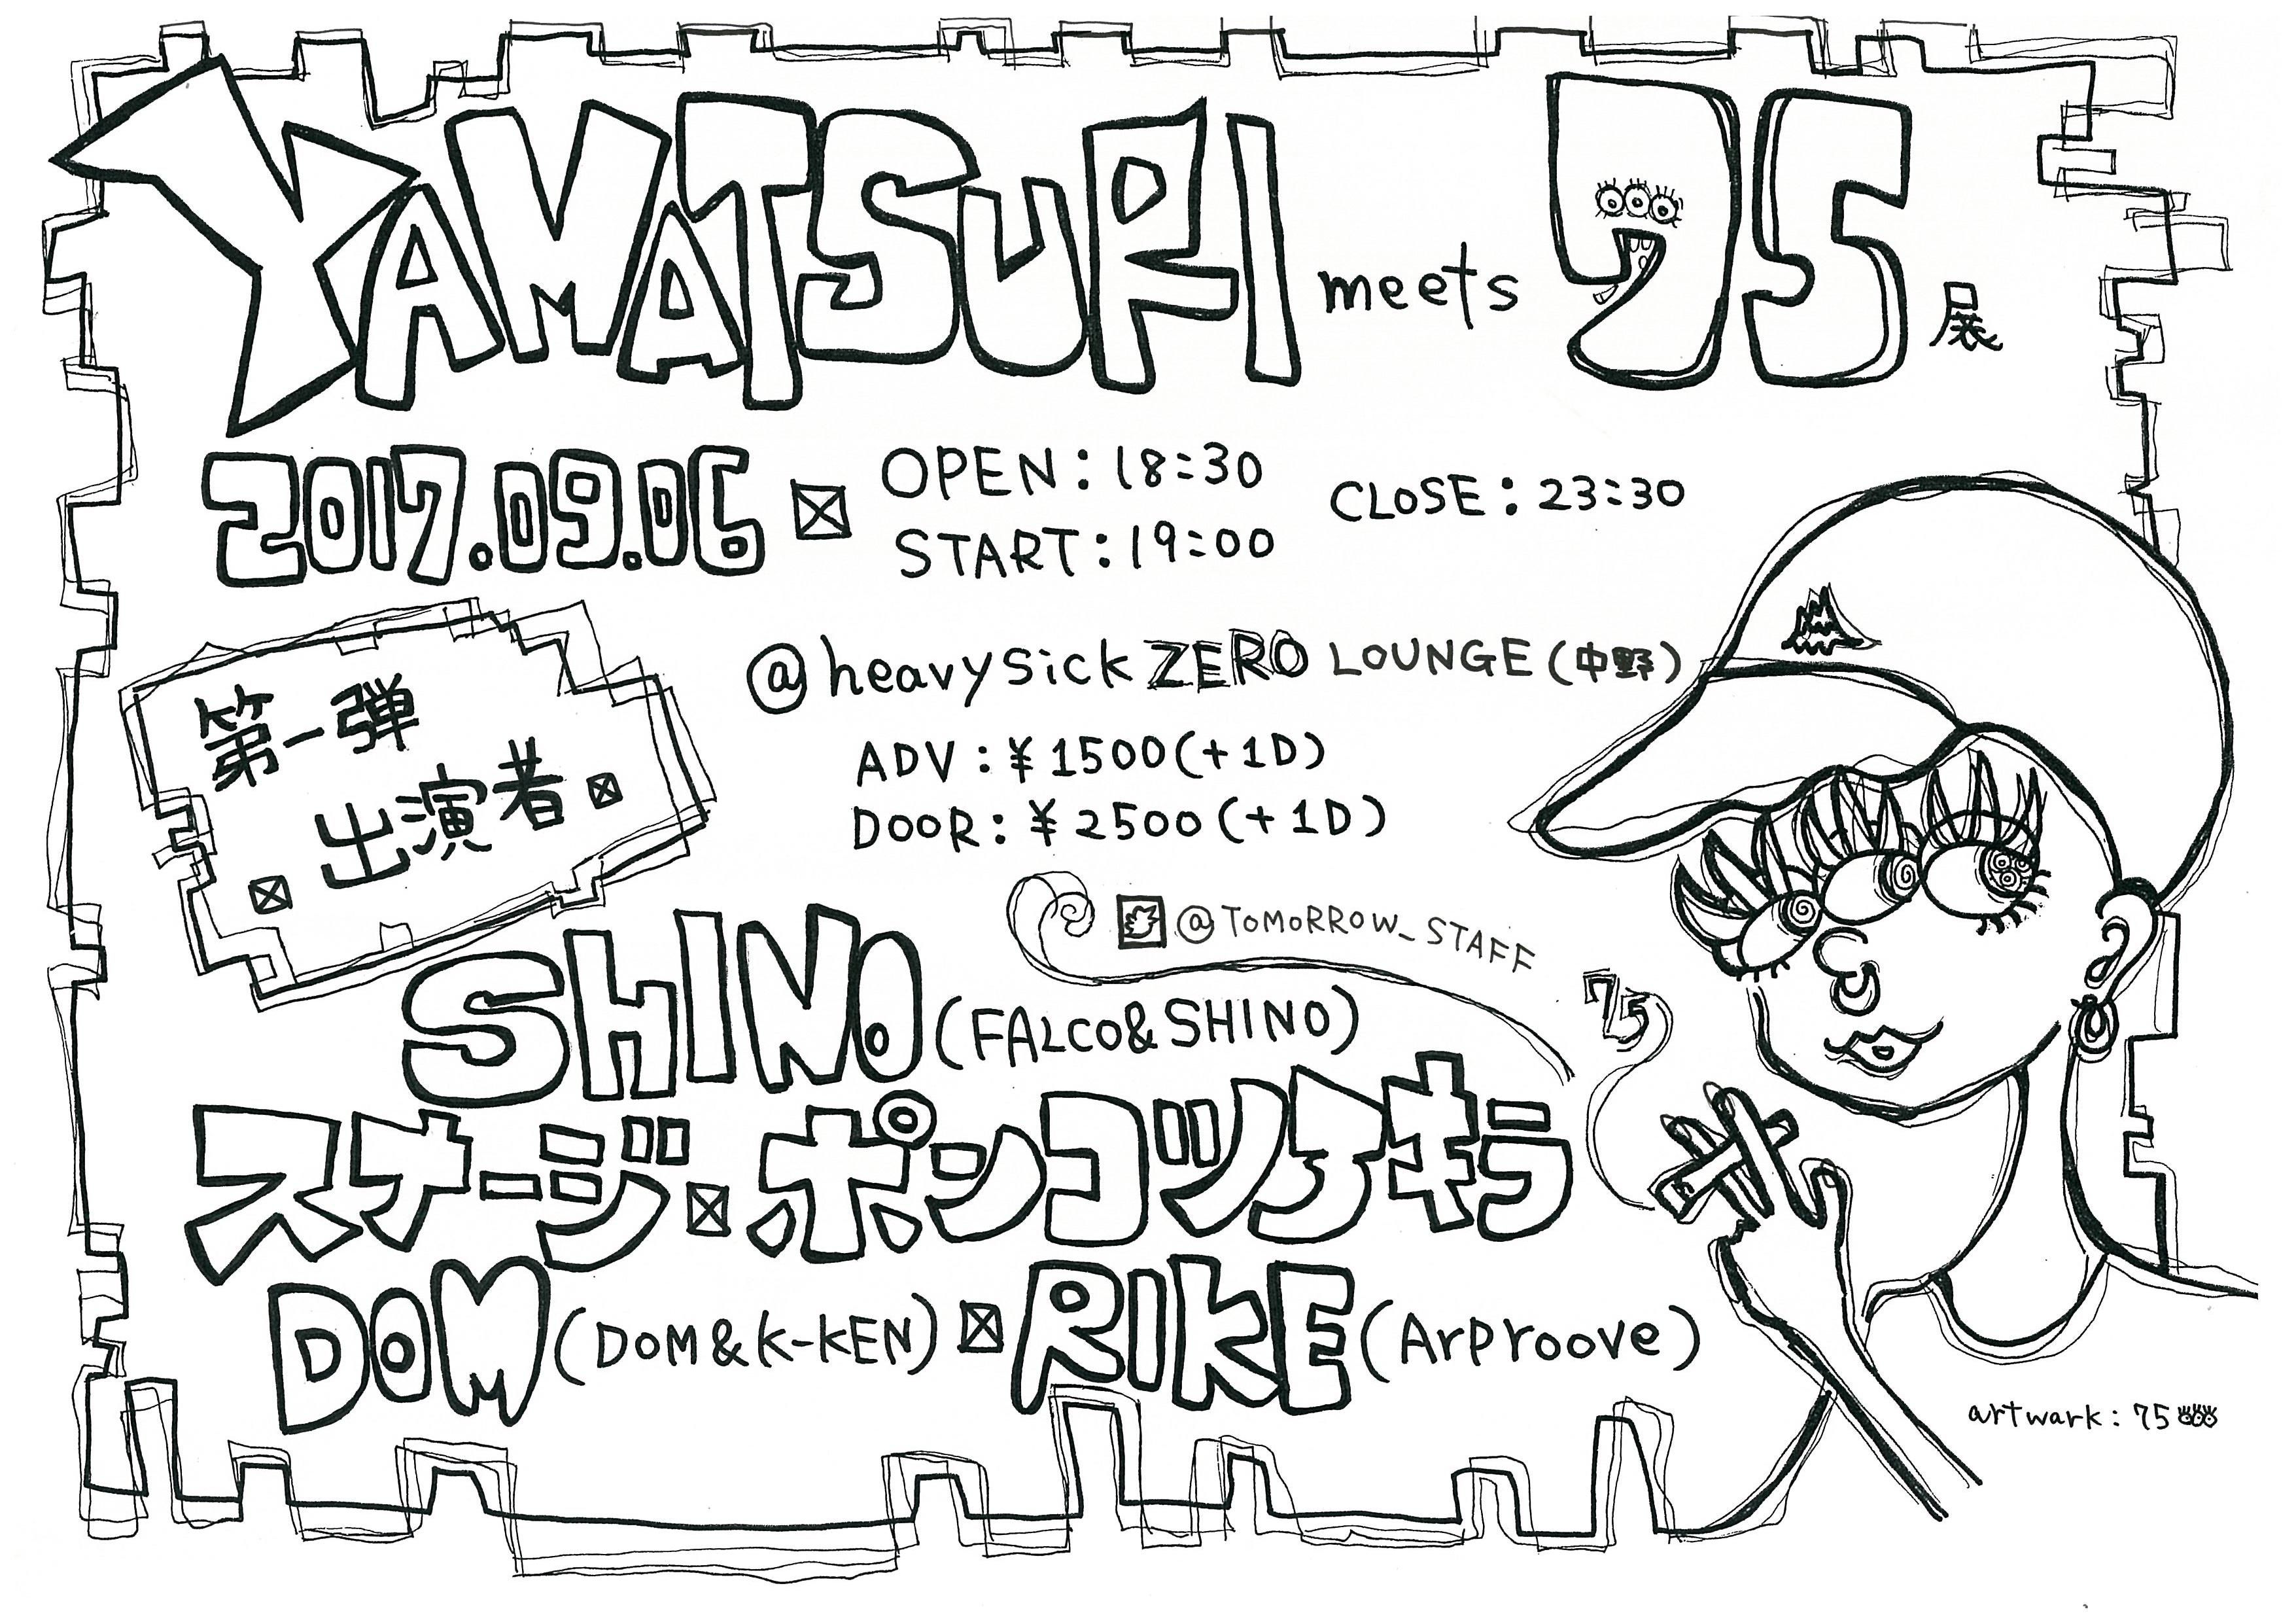 YAMATSURI meets 75 展
2017.09.06
OPEN:18:30
START:19:00
CLOSE:23:30
@heavysick ZERO LOUNGE(中野)
ADV:¥1500(+1D)
DOOR:¥2500(+1D)
第一弾
出演者
@TOMORROW_STAFF
SHINO(FALCO&SHINO)
75
スナージ ポンコツアキラ
DOM(DOM&K-KEN) RIKE(Arproove)
artwark:75